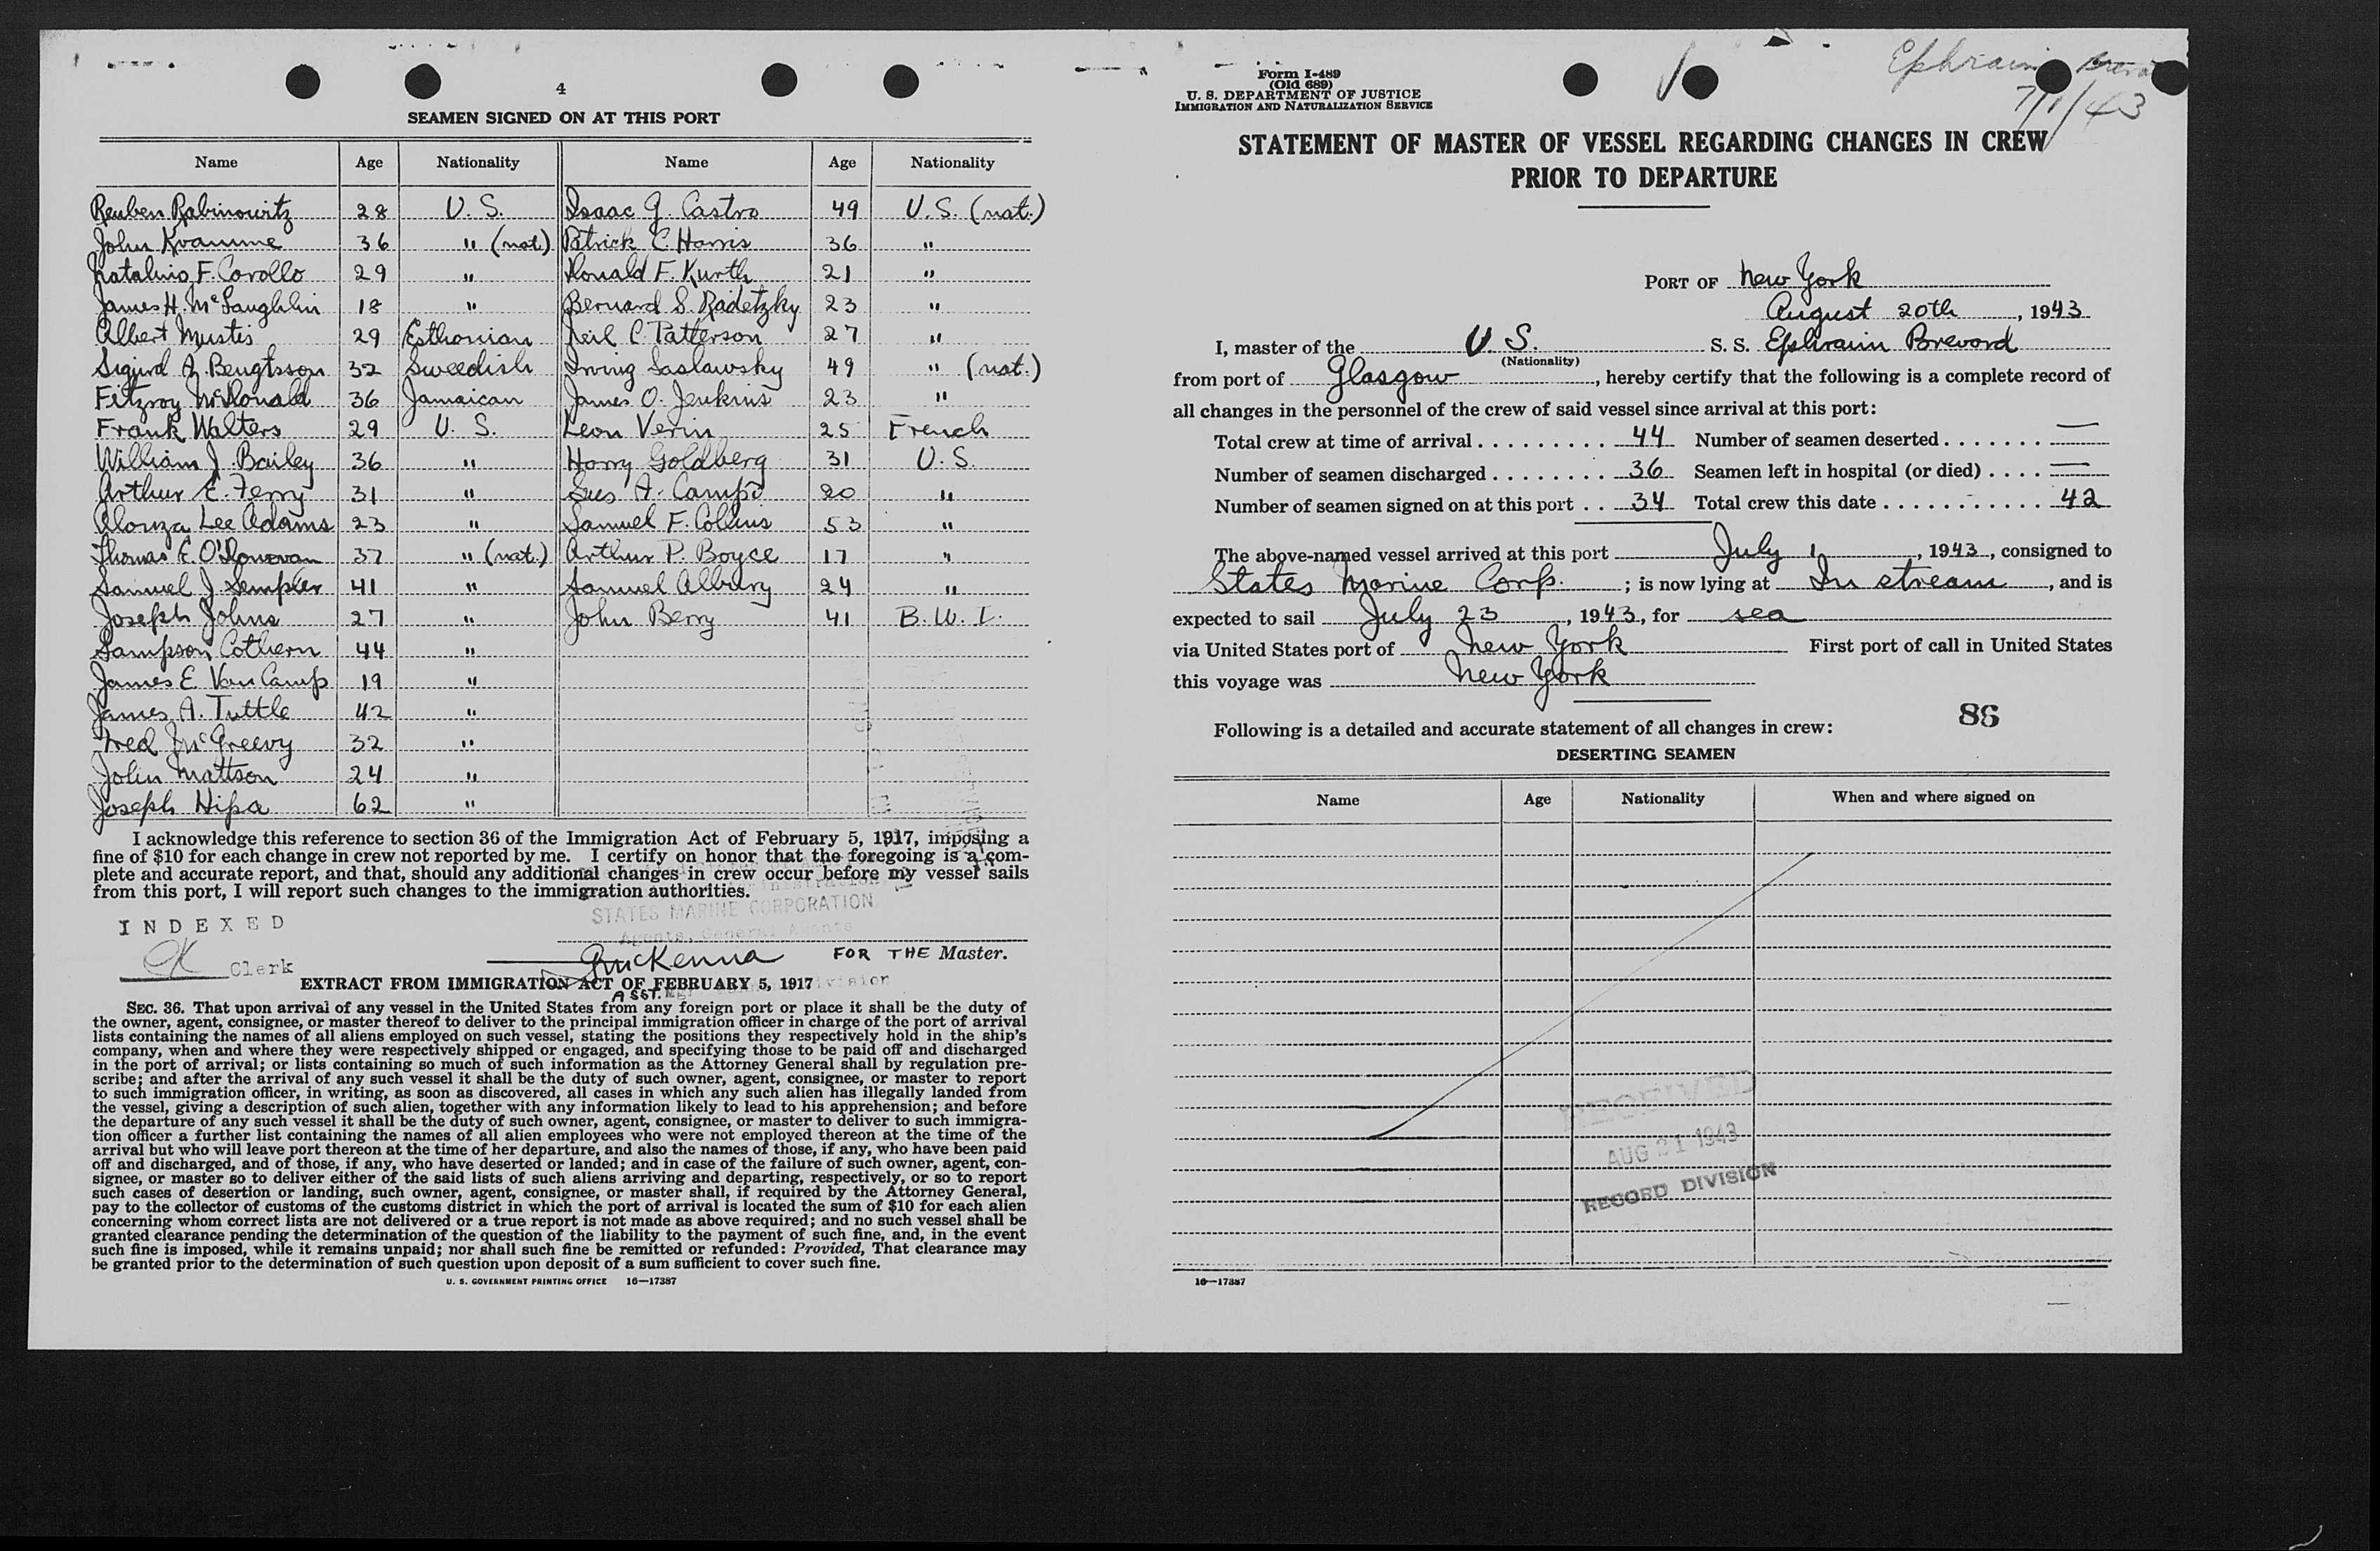 4
SEAMEN SIGNED ON AT THIS PORT
Name Age Nationality Name Age Nationality
Reuben Rabinowitz 28 U. S. Isaac J. Castro 49 U. S. (nat.)
John Kvamme 36 " (nat.) Patrick C. Harris 36 "
Natalino F. Corollo 29 " Ronald F. Kurth 21 "
James H. McLaughlin 18 " Bernard S. Radetzky 23 "
Albert Mustis 29 Esthonian Neil C. Patterson 27 "
Sigurd A. Bengtsson 32 Swedish Irving Saslawsky 49 " (nat.)
Fitzroy McDonald 36 Jamaican James O. Jenkins 23 "
Frank Walters 29 U. S. Leon Verin 25 French
William J. Bailey 36 " Harry Goldberg 31 U. S.
Arthur E. Ferry 31 " A. Campo 20 "
Alonza Lee Adams 23 " Samuel F. Collins 53 "
Thomas E. O'Donovan 37 " (nat.) Arthur P. Boyce 17 "
Samuel J. Sempler 41 " Samuel Albury 24 "
Joseph Johns 27 " John Berry 41 B. W. I.
Sampson Cothern 44 "
James E. Van Camp 19 "
James A. Tuttle 42 "
Fred McGreevy 32 "
John Mattson 24 "
Joseph Hipa 62 "
I acknowledge this reference to section 36 of the Immigration Act of February 5, 1917, imposing a
fine of $10 for each change in crew not reported by me. I certify on honor that the foregoing is a com-
plete and accurate report, and that, should any additional changes in crew occur before my vessel sails
from this port, I will report such changes to the immigration authorities.
INDEXED
STATES MARINE CORPORATION
Agents, General Agents
McKenna FOR THE Master.
Clerk
EXTRACT FROM IMMIGRATION ACT OF FEBRUARY 5, 1917
ASST.
SEC. 36. That upon arrival of any vessel in the United States from any foreign port or place it shall be the duty of
the owner, agent, consignee, or master thereof to deliver to the principal immigration officer in charge of the port of arrival
lists containing the names of all aliens employed on such vessel, stating the positions they respectively hold in the ship's
company, when and where they were respectively shipped or engaged, and specifying those to be paid off and discharged
in the port of arrival; or lists containing so much of such information as the Attorney General shall by regulation pre-
scribe; and after the arrival of any such vessel it shall be the duty of such owner, agent, consignee, or master to report
to such immigration officer, in writing, as soon as discovered, all cases in which any such alien has illegally landed from
the vessel, giving a description of such alien, together with any information likely to lead to his apprehension; and before
the departure of any such vessel it shall be the duty of such owner, agent, consignee, or master to deliver to such immigra-
tion officer a further list containing the names of all alien employees who were not employed thereon at the time of the
arrival but who will leave port thereon at the time of her departure, and also the names of those, if any, who have been paid
off and discharged, and of those, if any, who have deserted or landed; and in case of the failure of such owner, agent, con-
signee, or master so to deliver either of the said lists of such aliens arriving and departing, respectively, or so to report
such cases of desertion or landing, such owner, agent, consignee, or master shall, if required by the Attorney General,
pay to the collector of customs of the customs district in which the port of arrival is located the sum of $10 for each alien
concerning whom correct lists are not delivered or a true report is not made as above required; and no such vessel shall be
granted clearance pending the determination of the question of the liability to the payment of such fine, and, in the event
such fine is imposed, while it remains unpaid; nor shall such fine be remitted or refunded: Provided, That clearance may
be granted prior to the determination of such question upon deposit of a sum sufficient to cover such fine.
U. S. GOVERNMENT PRINTING OFFICE 16—17387
Form I-489
(Old 689)
U. S. DEPARTMENT OF JUSTICE
IMMIGRATION AND NATURALIZATION SERVICE
Ephraim
7/1/43
STATEMENT OF MASTER OF VESSEL REGARDING CHANGES IN CREW
PRIOR TO DEPARTURE
PORT OF New York
August 20th, 1943
I, master of the U. S. S. S. Ephraim Brevard
(Nationality)
from port of Glasgow, hereby certify that the following is a complete record of
all changes in the personnel of the crew of said vessel since arrival at this port:
Total crew at time of arrival . . . . . . . . . 44 Number of seamen deserted . . . . . . . —
Number of seamen discharged . . . . . . . . 36 Seamen left in hospital (or died) . . . . —
Number of seamen signed on at this port . . 34 Total crew this date . . . . . . . . . . . 42
The above-named vessel arrived at this port July 1, 1943, consigned to
States Marine Corp.; is now lying at In stream, and is
expected to sail July 23, 1943, for sea
via United States port of New York First port of call in United States
this voyage was New York
86
Following is a detailed and accurate statement of all changes in crew:
DESERTING SEAMEN
Name Age Nationality When and where signed on
RECEIVED
AUG 21 1943
RECORD DIVISION
16—17387